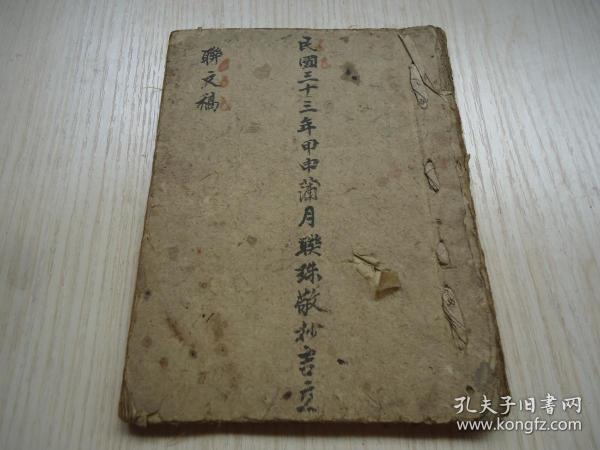 民國三十三年甲申蒲月聯珠敬抄吉立
聯文稿
孔夫子旧书网
www.kongfz.com